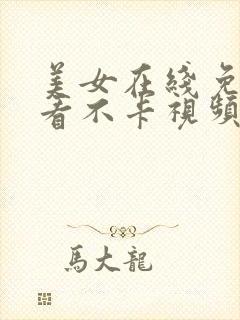 美女在綫免
看不卡視頻
馬大龍